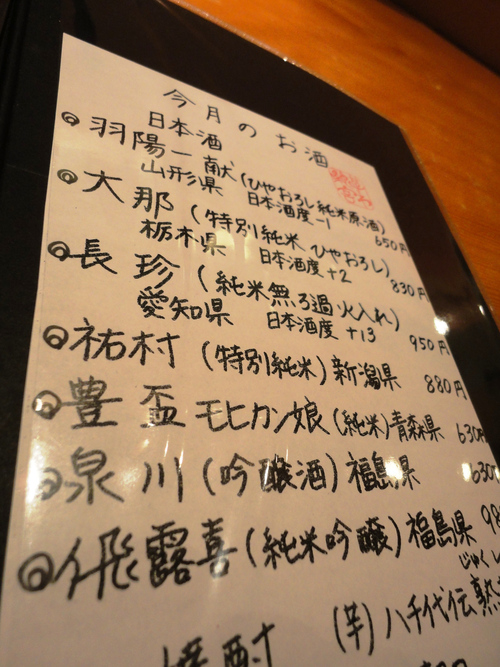 今月のお酒
日本酒
◎羽陽一献(ひやおろし純米原酒)
山形県 日本酒度-1 650円
◎大那(特別純米ひやおろし)
栃木県 日本酒度+2 830円
◎長珍(純米無ろ過火入れ)
愛知県 日本酒度+13 950円
◎祐村(特別純米)新潟県 880円
◎豊盃 モヒカン娘(純米)青森県 630円
◎泉川(吟醸酒)福島県 630
◎飛露喜(純米吟醸)福島県 98
じゅくし
焼酎 (芋)八千代伝熟